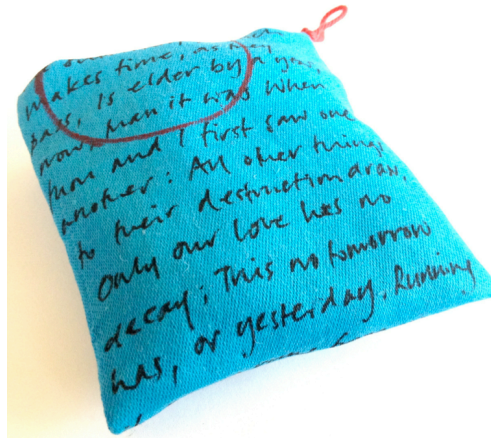 makes time, as they
pass, is elder by a year,
now, than it was when
thou and I first saw one
another: All other things,
to their destruction draw,
Only our love has no
decay; This no tomorrow
has, or yesterday, Running